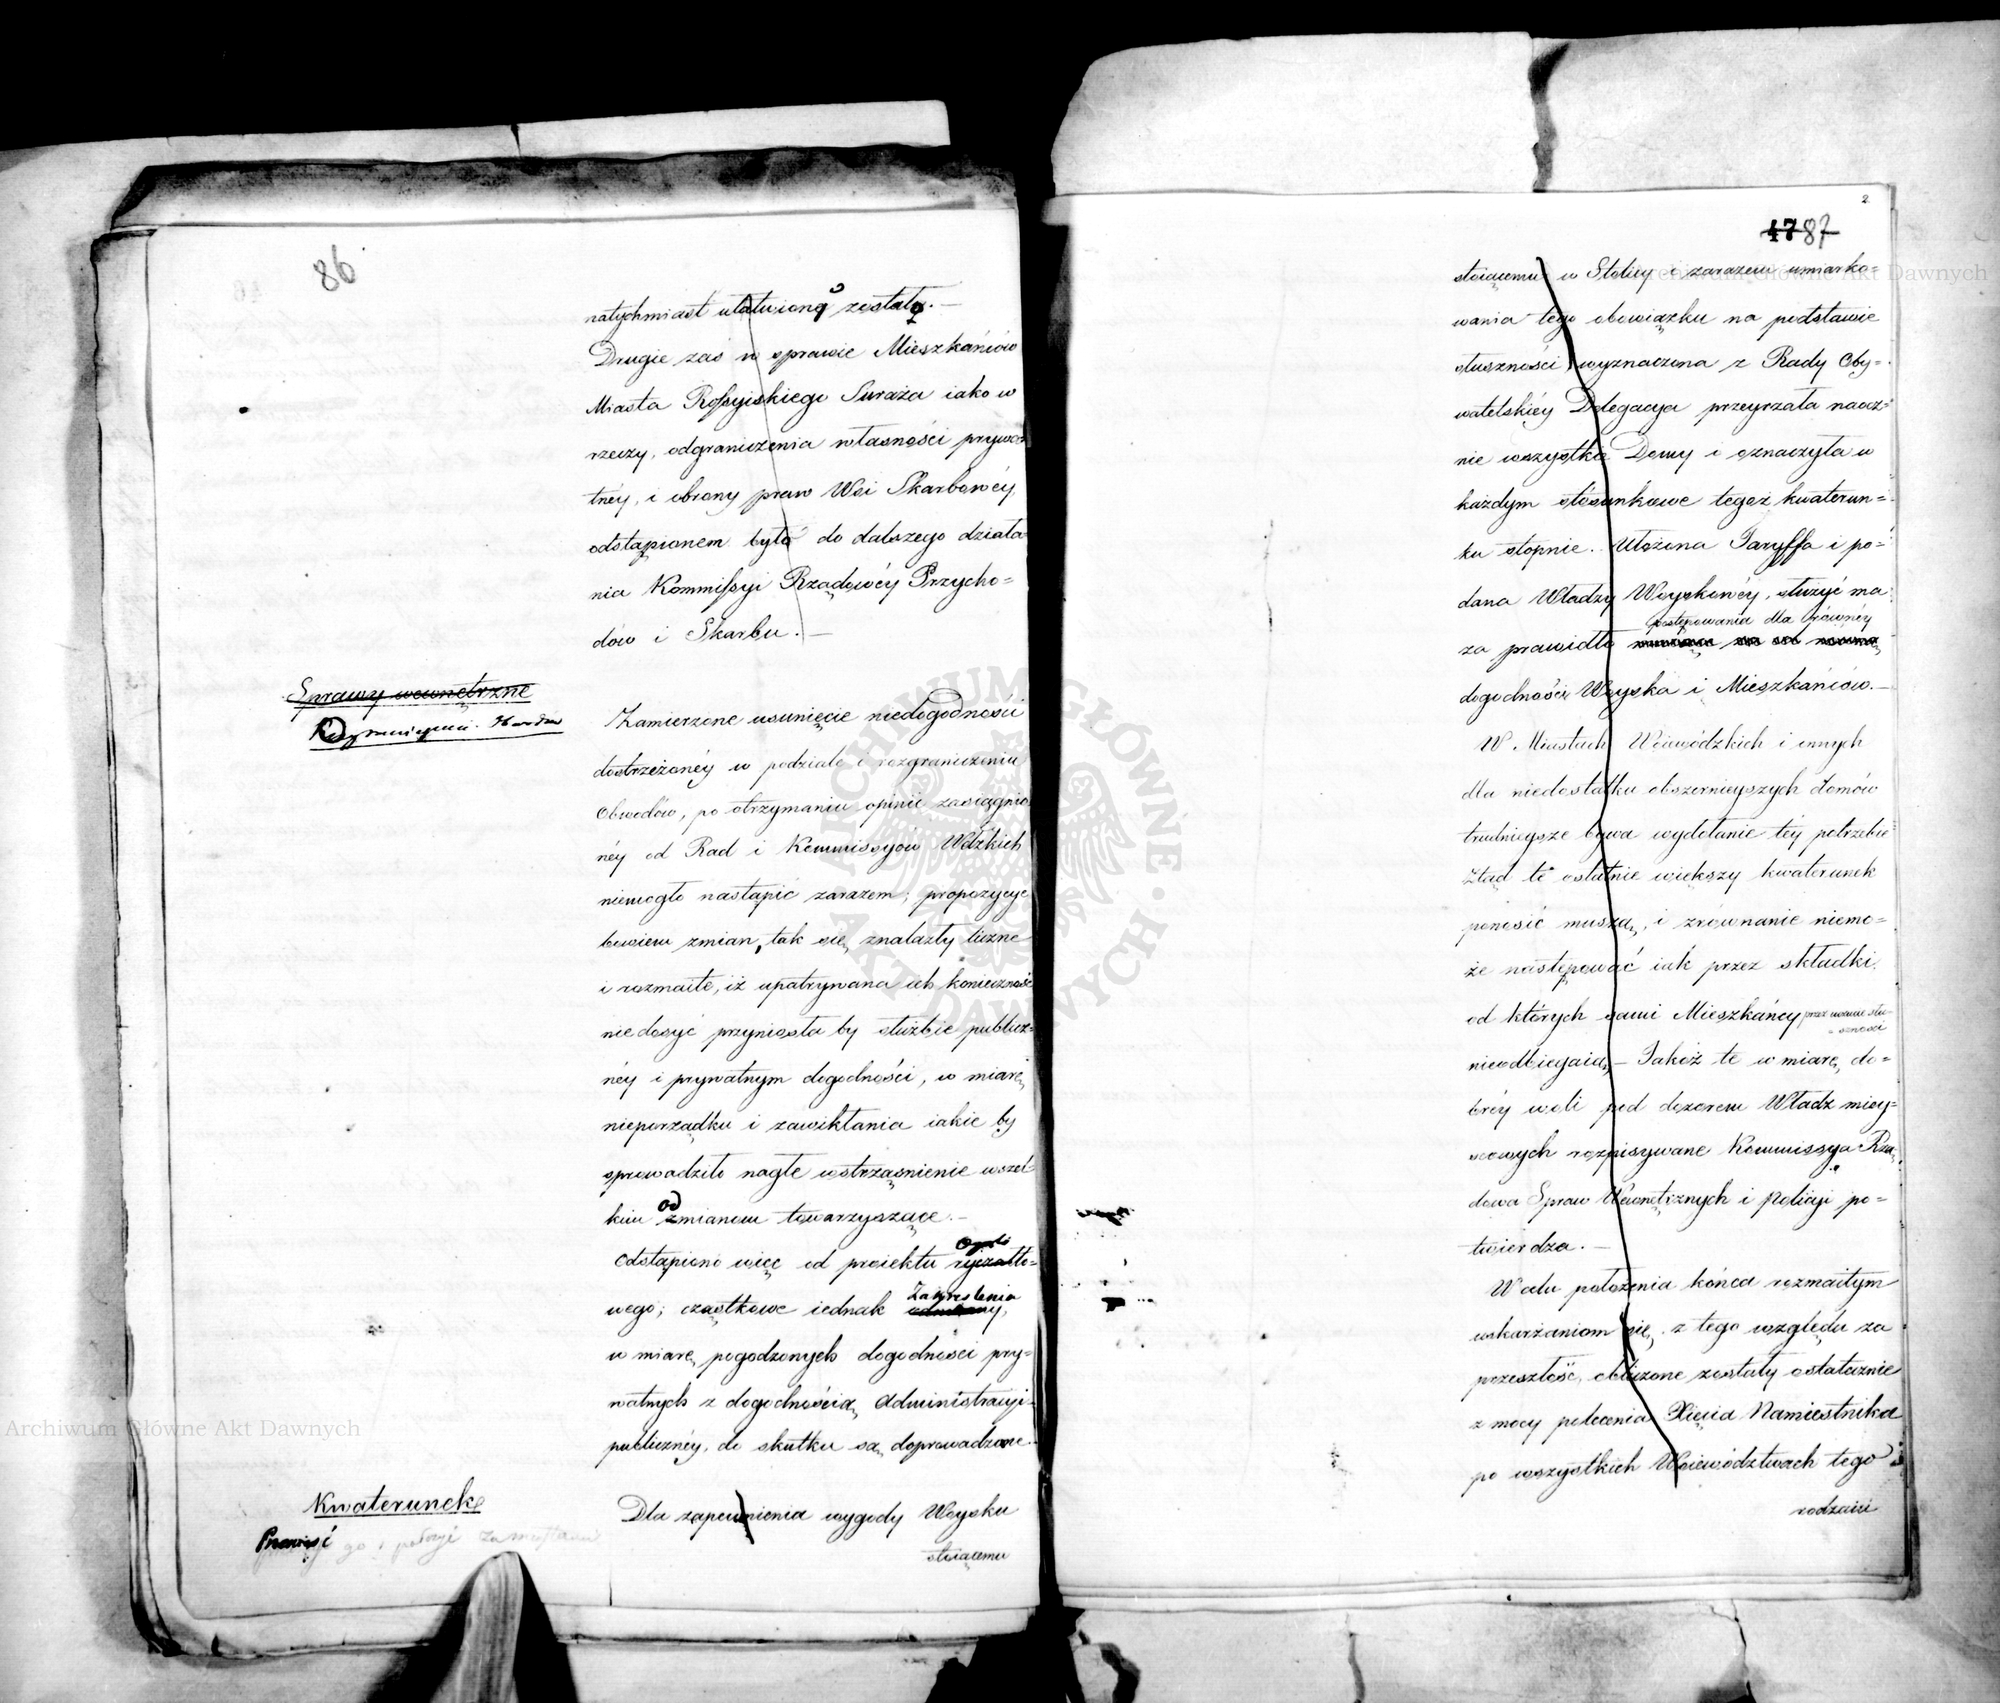 86
natychmiast ułatwiono zostało.—
Drugie zaś w sprawie Mieszkańców
Miasta Rossyiskiego Suraża iako w
rzeczy, odgraniczenia własności prywa-
tnéy, i obrony praw Wsi Skarbowéy,
odstąpionem było do dalszego działa-
nia Kommissyi Rządowéy Przycho=
dów i Skarbu.—
Sprawy wewnętrzne
Zamierzone usunięcie niedogodności
dostrzeżonéy w podziale i rozgraniczeniu
Obwodów, po otrzymaniu opinii zasiągnio
néy od Rad i Kommissyów Wdzkich
niemogło nastąpić zarazem; propozycye
bowiem zmian, tak się znalazły liczne
i rozmaite, iż upatrywana ich konieczność
niedosyć przyniosła by służbie publicz=
néy i prywatnym dogodności, w miarę
nieporządku i zawikłania iakie by
sprowadziło nagłe wstrząśnienie wszel=
kim od zmianom towarzyszące.—
Odstąpiono więc od proiektu ogóło ryczałto=
wego; cząstkowe iednak Zakreślenia odmiany,
w miarę pogodzonych dogodności pry=
watnych z dogodnością Administracyi
publicznéy, do skutku są doprowadzone.
Kwaterunek
Dla zapewnienia wygody Woysku
stoiącemu
2
47 87
stoiącemu w Stolicy i zarazem umiarko=
wania tego obowiązku na podstawie
słuszności wyznaczona z Rady Oby=
watelskiéy Delegacya przeyrzała naocz=
nie wszystkie Domy i oznaczyła w
każdym stósunkowe tegoż kwaterun=
ku stopnie. Ułożona Taryffa i po=
dana Władzy Woyskowéy, służyć ma
postępowania dla równéy
za prawidło
dogodności Woyska i Mieszkańców.—
W Miastach Woiewódzkich i innych
dla niedostatku obszernieyszych Domów
trudnieysze bywa wydołanie téy potrzebie
Ztąd té ostatnie większy kwaterunek
ponosić muszą, i zrównanie niemo=
że następować iak przez składki,
od których sami Mieszkańcy przez uznanie słu-
szności
nieodbiegaią— Jakóż te w miarę do=
bréy woli pod dozorem Władz miey=
scowych rozpisywane Kommissya Rzą
dowa Spraw Wewnętrznych i Policyi po=
twierdza.—
W celu położenia końca rozmaitym
uskarżaniom się z tego względu za
przeszłość, obliczone zostały ostatecznie
z mocy polecenia Xięcia Namiestnika
po wszystkich Woiewództwach tego
rodzaiu
Archiwum Główne Akt Dawnych
Archiwum Główne Akt Dawnych
ARCHIWUM GŁÓWNE AKT DAWNYCH